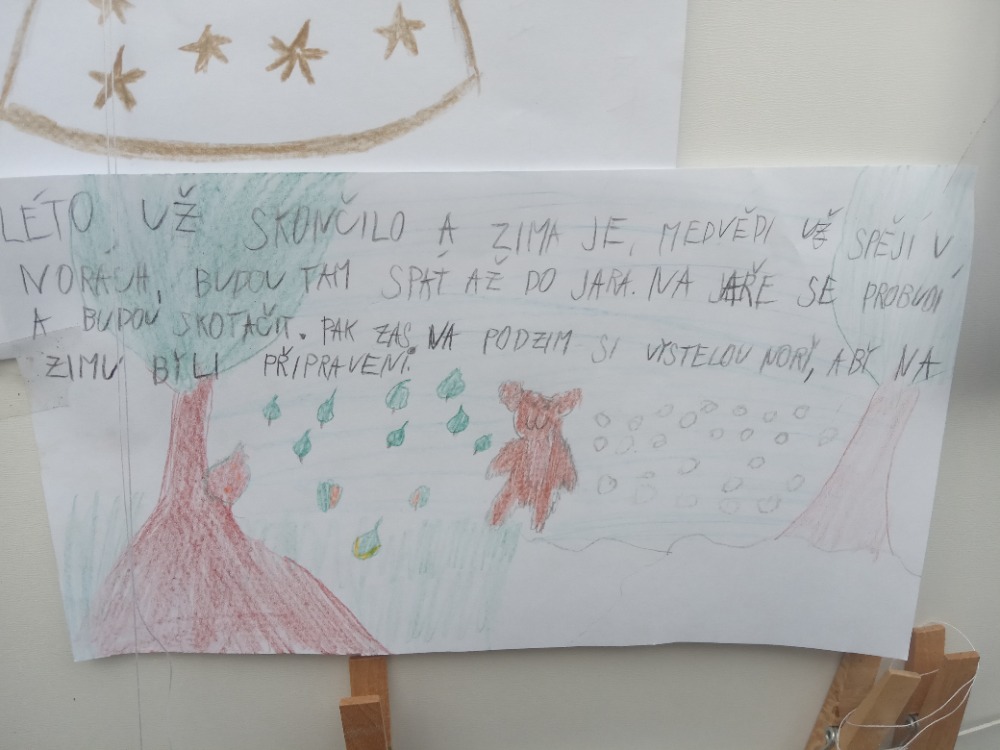 LÉTO UŽ SKONČILO A ZIMA JE, MEDVĚDI UŽ SPĚJÍ V
NORÁCH, BUDOU TAM SPÁT AŽ DO JARA. NA JAŘE SE PROBUDÍ
A BUDOU SKOTAČIT. PAK ZAS NA PODZIM SI VYSTELOU NORY, ABY NA
ZIMU BYLI PŘIPRAVENÍ.